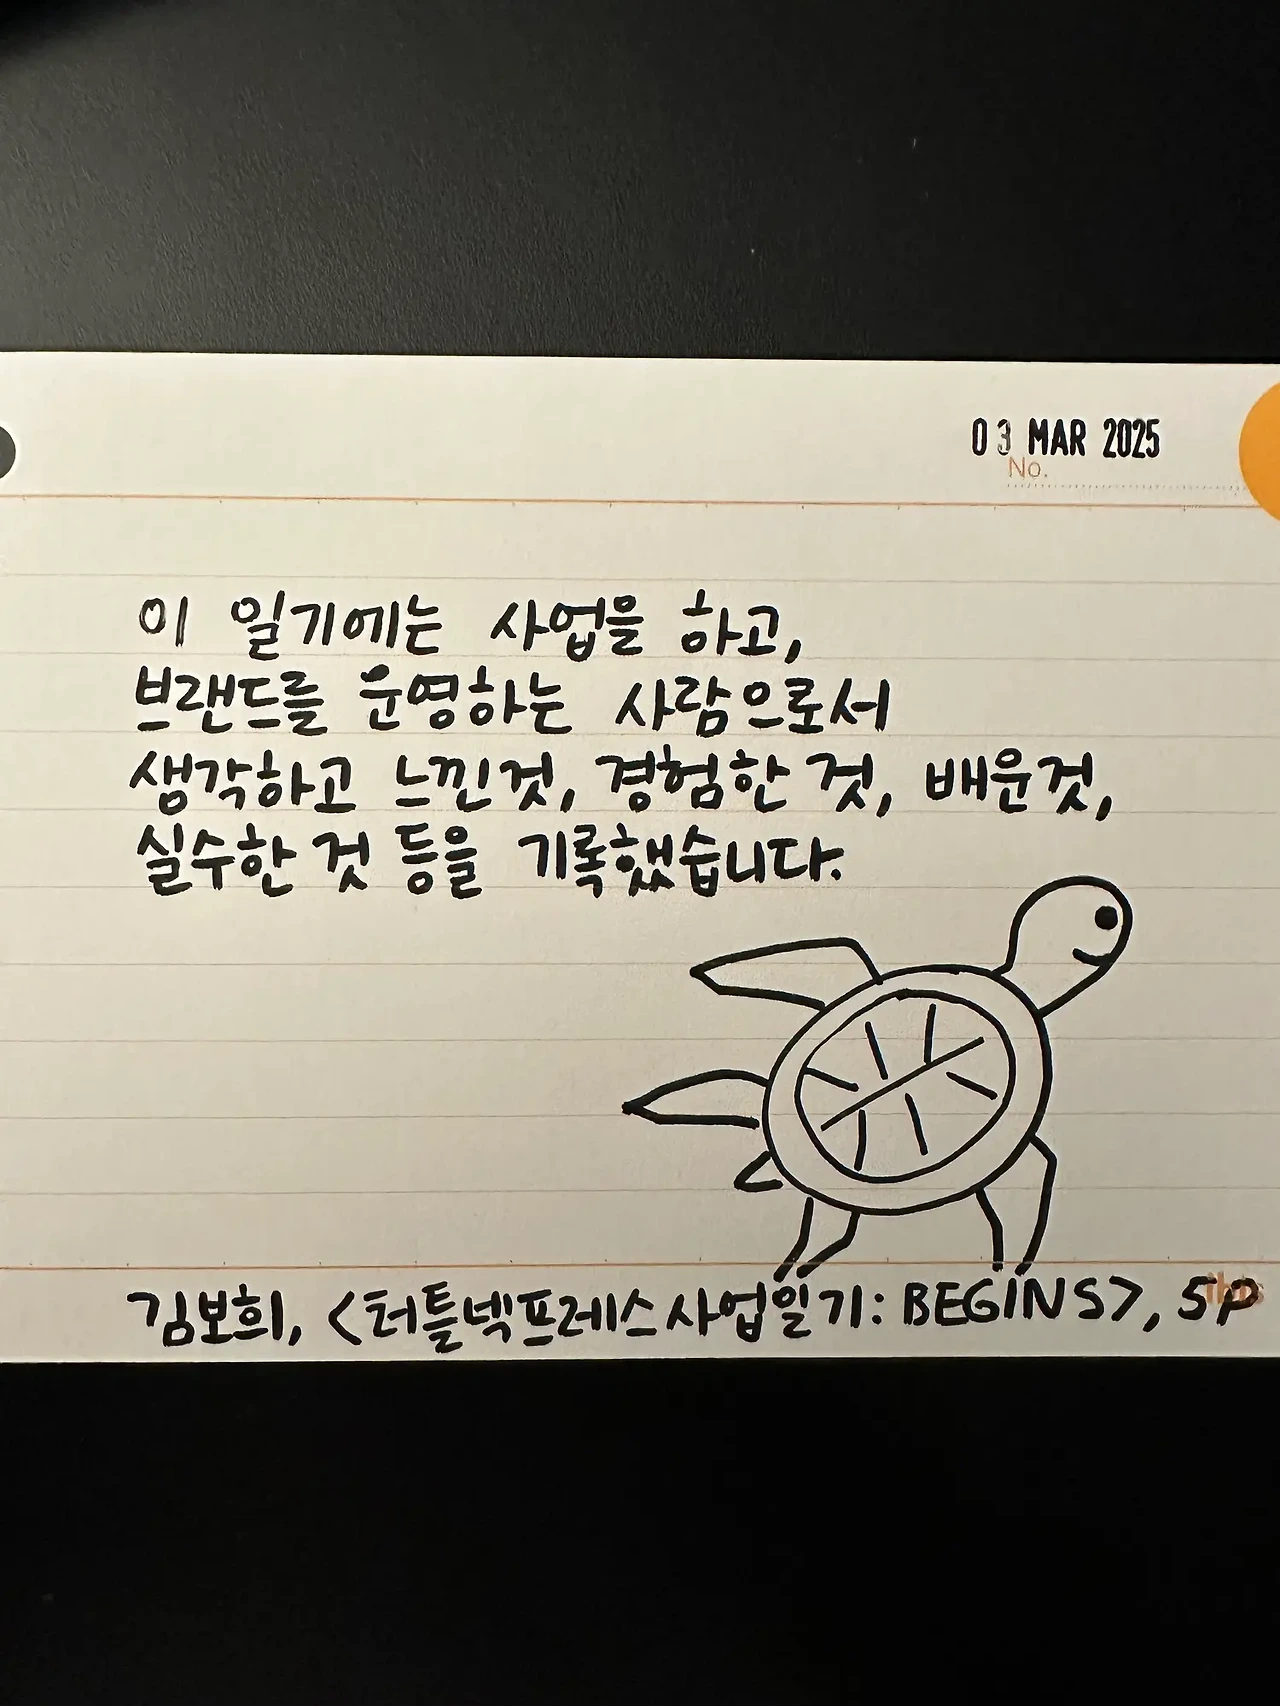 03 MAR 2025
No.
이 일기에는 사업을 하고,
브랜드를 운영하는 사람으로서
생각하고 느낀것, 경험한 것, 배운것,
실수한 것 등을 기록했습니다.
김보희, <터틀넥프레스사업일기: BEGINS>, 5P